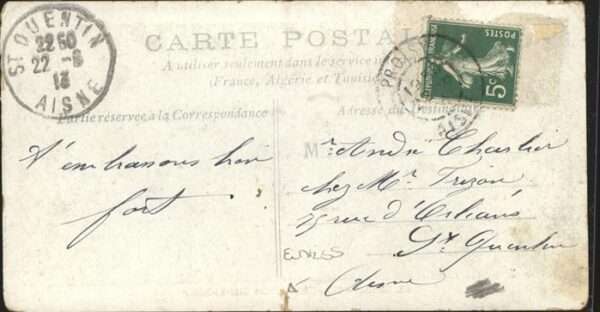 CARTE POSTALE
A utiliser seulement dans le service in
(France, Algérie et Tunisie
Partie réservée à la Correspondance
Adresse du Destinataire
ST QUENTIN
22 50
22 -8
13
AISNE
PROI
POSTES
5c
t'embrassons bien
fort.
Mr André Charlier
chez Mr Trizon
rue d'Orléans
St Quentin
Aisne